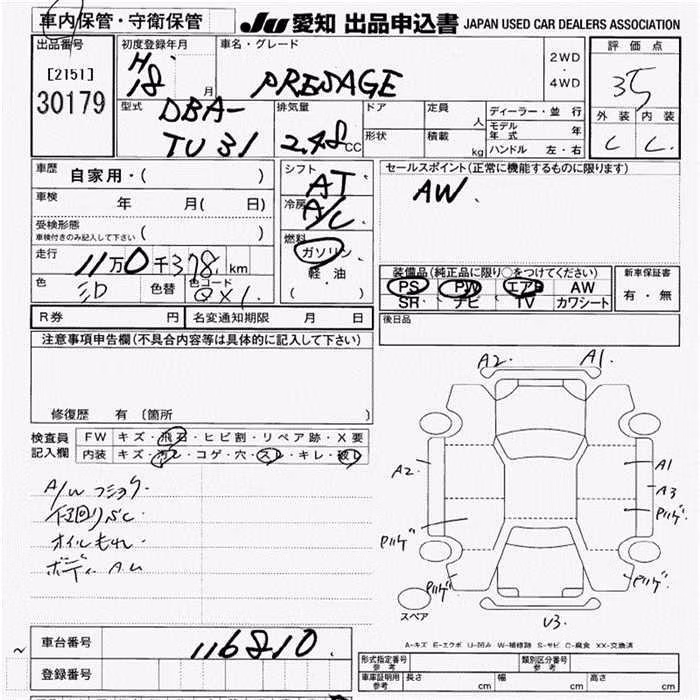 車内保管・守衛保管
JU 愛知 出品申込書 JAPAN USED CAR DEALERS ASSOCIATION
出品番号
[2151]
30179
初度登録年月
H.
18 月
車名・グレード
PRESAGE
2WD
・
4WD
評価点
35
外装 内装
C C.
型式
DBA-
TU31
排気量
2.48 CC
ドア
形状
定員 人
積載 kg
ディーラー・並行
モデル年式 年
ハンドル 左・右
車歴 自家用・( )
車検 年 月( 日)
受検形態
車検付きのみ記入して下さい ( )
走行 11万0千378 km
色 色替 色コード
QX1.
シフト
AT
冷房
A/C
燃料
ガソリン
軽・油
( )
セールスポイント(正常に機能するものに限ります)
AW.
装備品(純正品に限り○をつけてください)
PS PW エアB AW
SR ナビ TV カワシート
新車保証書
有・無
R券 円 名変通知期限 月 日
後日品
注意事項申告欄(不具合内容等は具体的に記入して下さい)
修復歴 有 〔箇所 〕
検査員
記入欄
FW キズ・飛石・ヒビ割・リペア跡・X要
内装 キズ・汚レ・コゲ・穴・スレ・キレ・破レ
A/W フショク.
下回りサビ
オイルもれ
A2. A1.
A2 A1
A3
Pハゲ Pハゲ
Pハゲ Pハゲ
スペア
U3.
A-キズ E-エクボ U-凹み W-補修跡 S-サビ C-腐食 XX-交換済
車台番号 116810.
登録番号
形式指定番号
参考
類別区分番号
参考
車庫証明用
参考
長さ cm 幅 cm 高さ cm